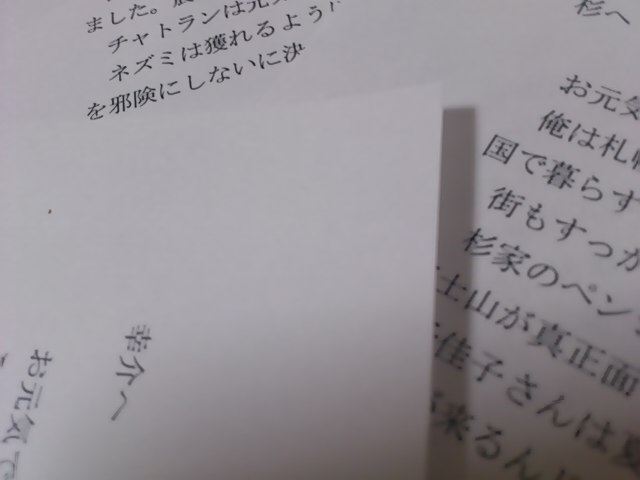 ました。
チャトランは元気
ネズミは獲れるように
を邪険にしないに決
杉へ
お元気
俺は札幌
国で暮らす
街もすっか
杉家のペン
士山が真正面
佳子さんは
来るん
幸介へ
お元気で